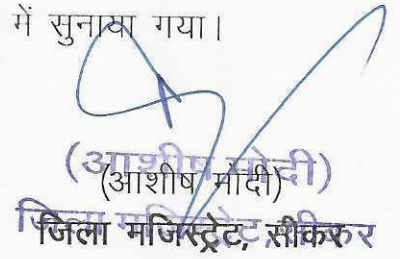 में सुनाया गया।
(आशीष मोदी)
(आशीष मोदी)
जिला मजिस्ट्रेट, सीकर
जिला मजिस्ट्रेट, सीकर